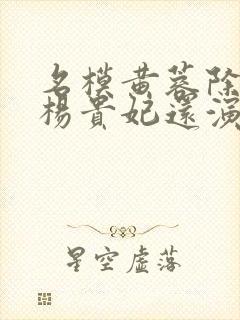 名模黄蓉除
楊貴妃還演
星空虛落